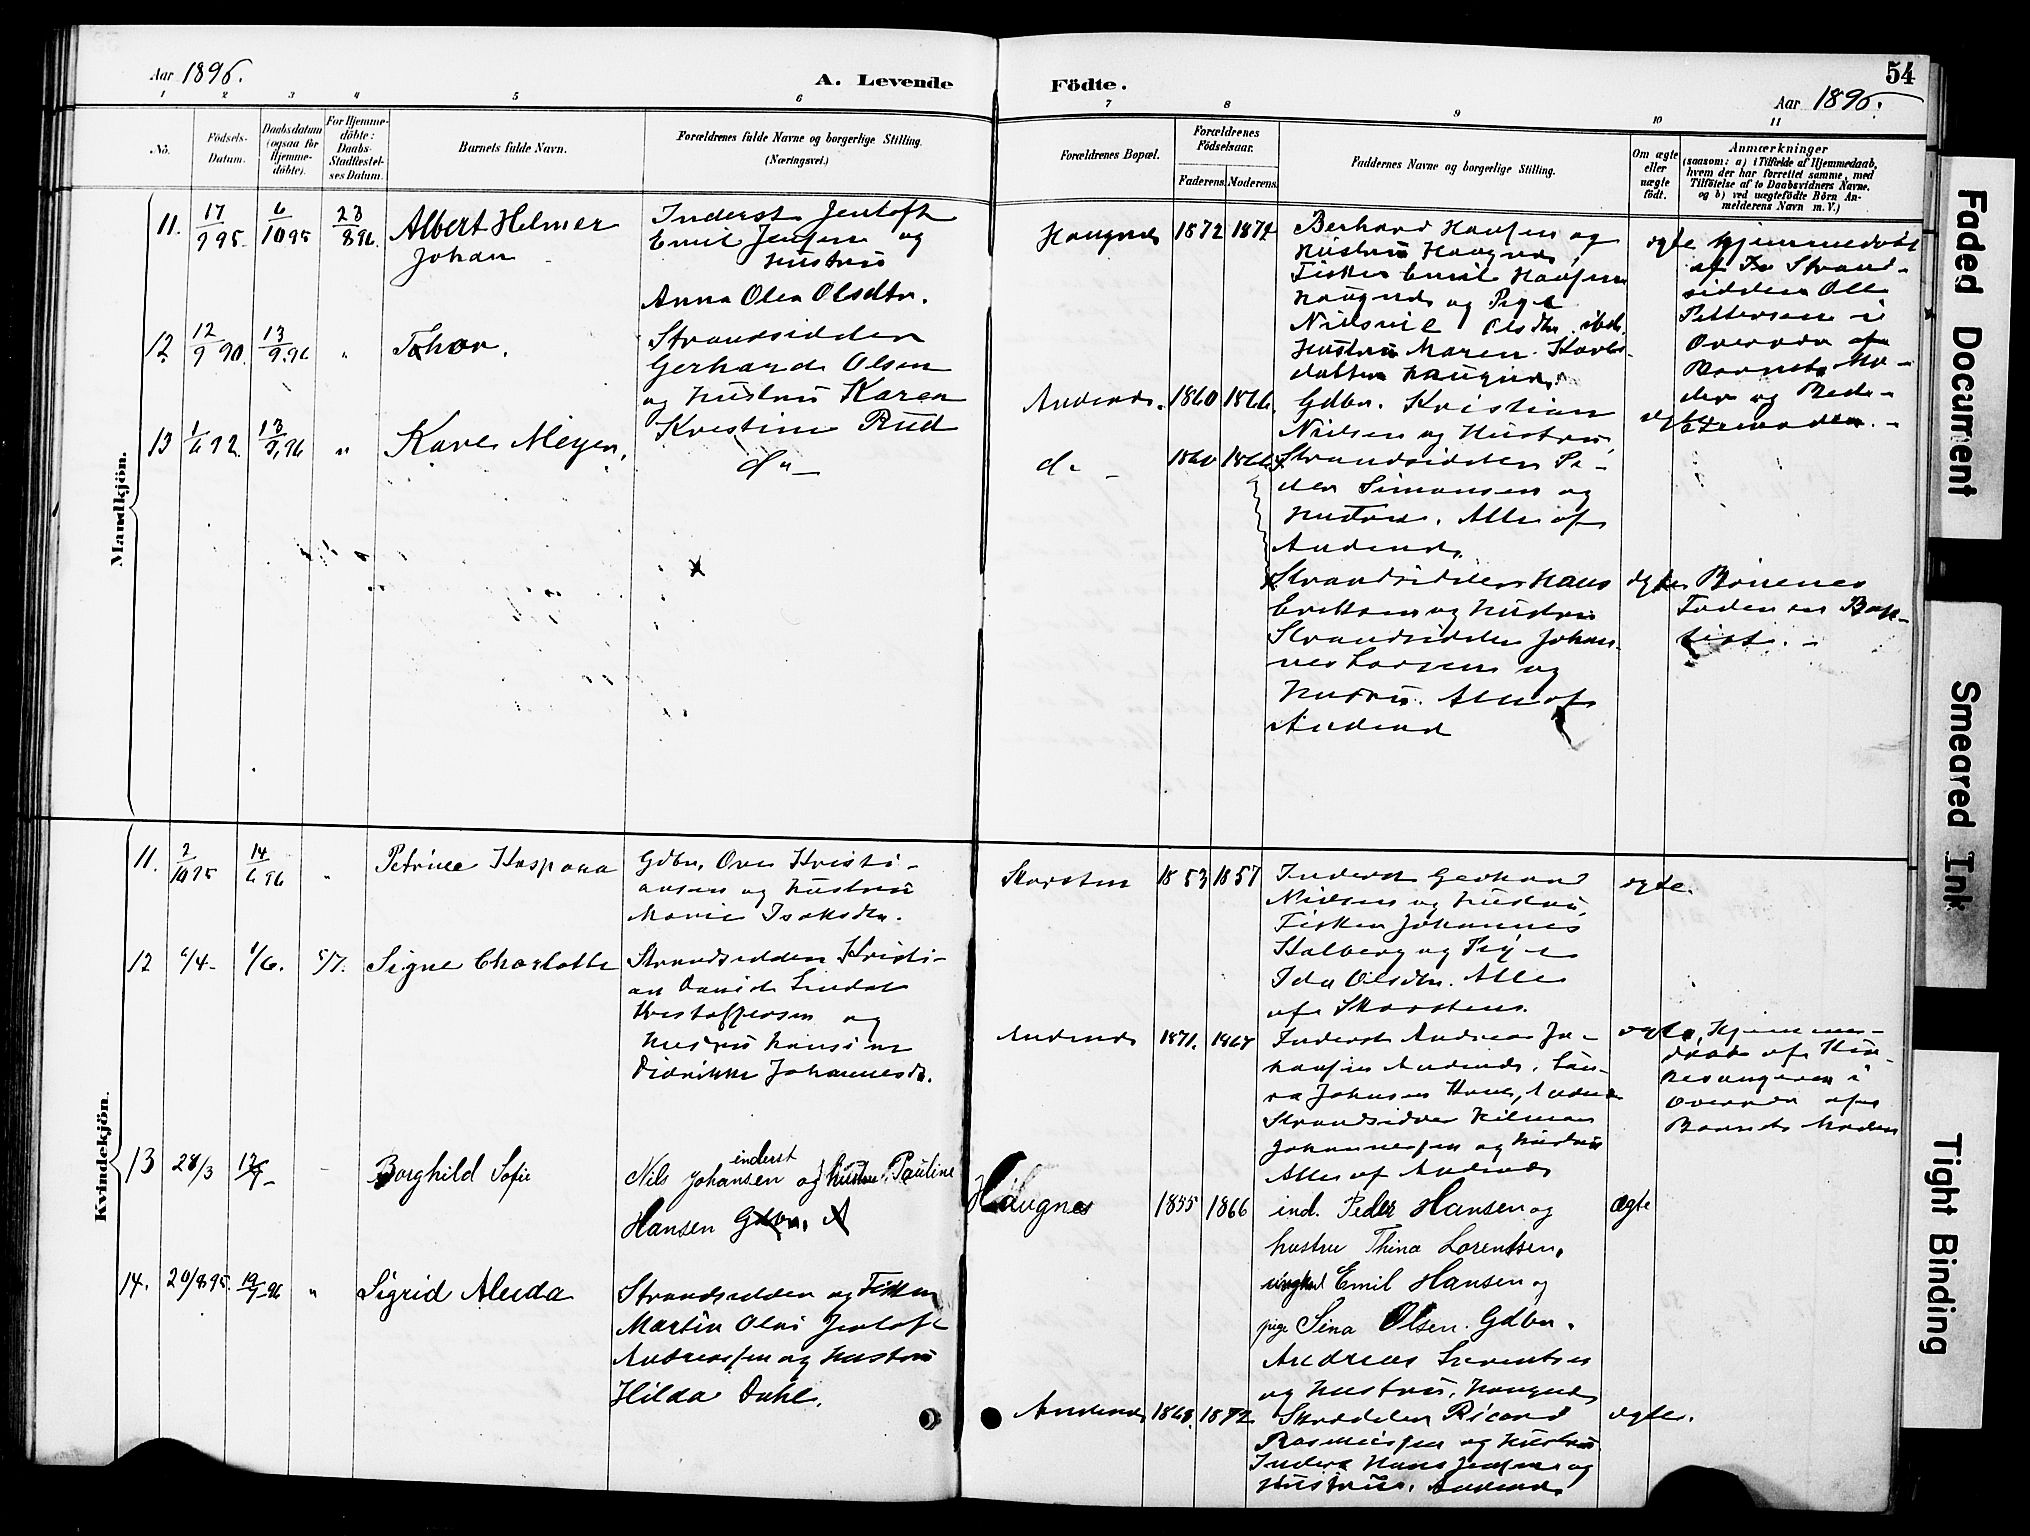 Aar 1896.
A. Levende
Födte.
54
Aar 1896.
1 2 3 4 5 6 7 8 9 10 11
No.
Födsels-
Datum.
Daabsdatum
(ogsaa for
Hjemme-
döbte).
For Hjemme-
döbte:
Daabs-
Stadfæstel-
ses Datum.
Barnets fulde Navn.
Forældrenes fulde Navne og borgerlige Stilling.
(Næringsvei.)
Forældrenes Bopæl.
Forældrenes
Födselsaar.
Faderens. Moderens.
Faddernes Navne og borgerlige Stilling.
Om ægte
eller
uægte
födt.
Anmærkninger
(saasom: a) i Tilfælde af Hjemmedaab,
hvem der har forrettet samme, med
Tilföielse af to Daabsvidners Navne.
og b) ved uægtefödte Börn An-
melderens Navn m. V.)
Mandkjön.
11. 17/9 95. 6/10 95 23/8 96.
Albert Helmer
Johan
Inderst Jentoft
Emil Jensen og
Hustru
Anna Olea Olsdtr.
Haugnes 1872 1874
Berhard Hansen og
Hustru Haugnes,
Fisker Emil Hansen
Haugnes og Pige
Olsdtr. ibd.
Hustru Maren
datter Haugnes.
ægte
Hjemmedöbt
af Strand-
sidder Ole
Pettersen i
Overvær af
Barnets Mo-
der og Bede-
stemoder.
12 12/9 90. 13/9 96 "
Thor.
Strandsidder
Gerhard Olsen
og Hustru Karen
Kristine Rud
Andenes. 1860 1866
Gdbr. Kristian
Nielsen og Hustru,
Strandsidder Pe-
der Simonsen og
Hustru. Alle af
Andenes.
ægte
13 1/6 92. 13/9 96 "
Kare Meyer.
do
do 1860 1866
Strandsidder Hans
Eriksen og Hustru
Strandsidder Johan-
nes Larsen og
Hustru. Alle af
Andenes
ægte
Börnenes
Fader er Bap-
tist.
Kvindekjön.
11. 2/10 95 14/6 96 "
Petrine Kaspara
Gdbr. Ove Kristi-
ansen og Hustru
Marie Isaksdtr.
Skarsten 1853 1857
Inderst Gerhard
Nielsen og Hustru,
Fisker Johannes
Stalberg og Pige
Ida Olsdtr. Alle
af Skarsten.
ægte.
12 6/4 1/6. 5/7.
Signe Charlotte
Strandsidder Kristi-
an David Lindal
Kristoffersen og
Hustru Hansine
Didrikke Johannesdr.
Andenes 1871. 1867
Inderst Andreas Jo-
hansen Andenes, Lau-
ra Johnsen
Strandsidder Hilmar
Johannessen og Hustru
Alle af Andenes
ægte
Hjemme-
döbt af Kir-
kesangeren i
Overvær af
Barnets Moder
13 28/3
Borghild Sofie
inderst
Nils Johansen og hustru Pauline
Hansen Gdbr. A
Haugnes 1855 1866
ind. Peder Hansen og
hustru Thina Lorentsen.
ungkarl Emil Hansen og
pige Sina Olsen. Gdbr.
Andreas Lorentsen
og Hustru, Haugnes
ægte
14. 20/8 95. 19/7 96 "
Sigrid Aleida
Strandsidder og Fisker
Martin Olai Jentoft
Andreassen og Hustru
Hilda Dahl.
Andenes 1868. 1872
Skrædder Ricard
Rasmussen og Hustru
Inderst Hans Jensen og
Hustru, Andenes
ægte.
Faded Document
Smeared Ink
Tight Binding